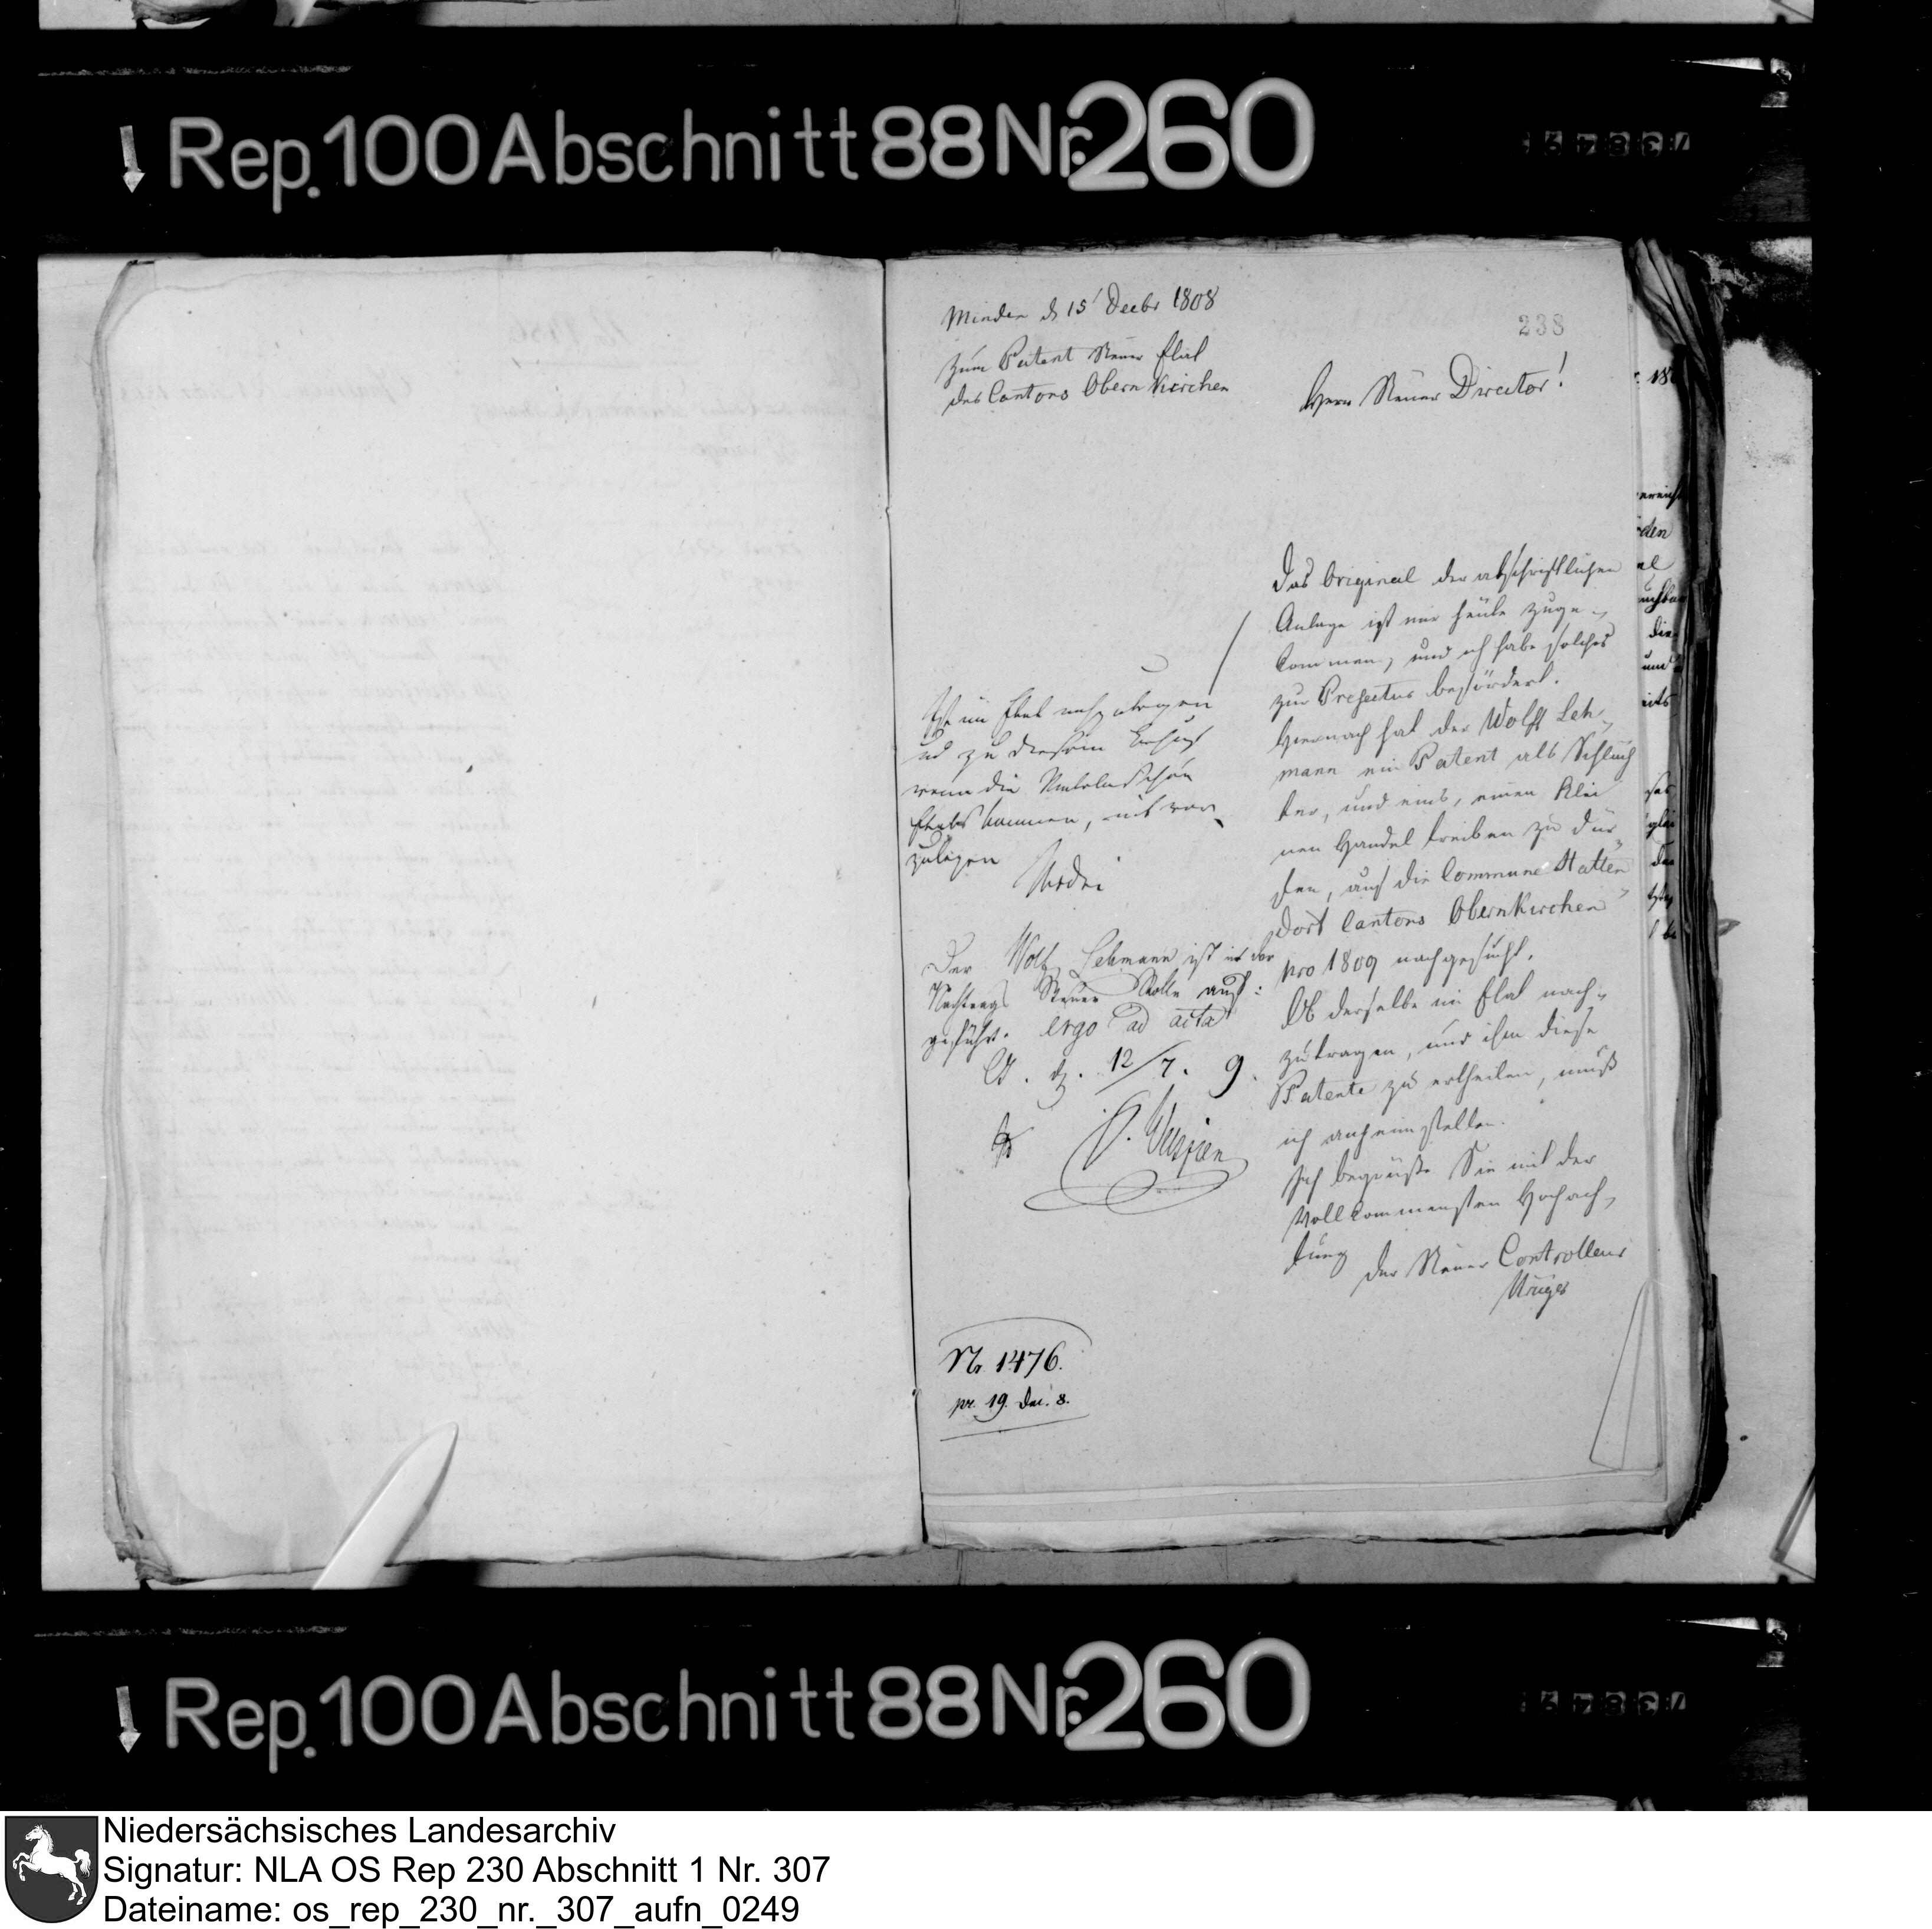 Rep. 100 Abschnitt 88 Nr. 260
Minden d 15' Decbr 1808
zum Patent Steuer Etat
des Cantons Obernkirchen
238
Herr Steuer Director!
Das Original der abschriftlichen
Anlage ist mir heute zuge-
kommen, und ich habe solches
zur Prefectur befördert.
Hiernach hat der Wolff Leh-
mann ein Patent als Schläch
ter, und eins, einen klei
nen Handel treiben zu dür
fen, auf die Commune Hatten
dorf Cantons Obernkirchen
pro 1809 nachgesucht.
Ob derselbe im Etat nach-
zutragen, und ihm diese
Patente zu ertheilen, muß
ich anheimstellen.
Ich begrüße Sie mit der
vollkommensten Hochach-
tung
Der Steuer Controlleur
Krüger
Ist im Etat nachzutragen
und zu diesem Behuf
wenn die
Etats kommen, mit vor
zulegen
Der Wolf Lehmann ist in der
Nachtrags Steuer Rolle auf:
geführt. ergo ad acta
O. d. 12/7. 9.
Nr. 1476.
pr. 19. Dec. 8.
Rep. 100 Abschnitt 88 Nr. 260
Niedersächsisches Landesarchiv
Signatur: NLA OS Rep 230 Abschnitt 1 Nr. 307
Dateiname: os_rep_230_nr._307_aufn_0249